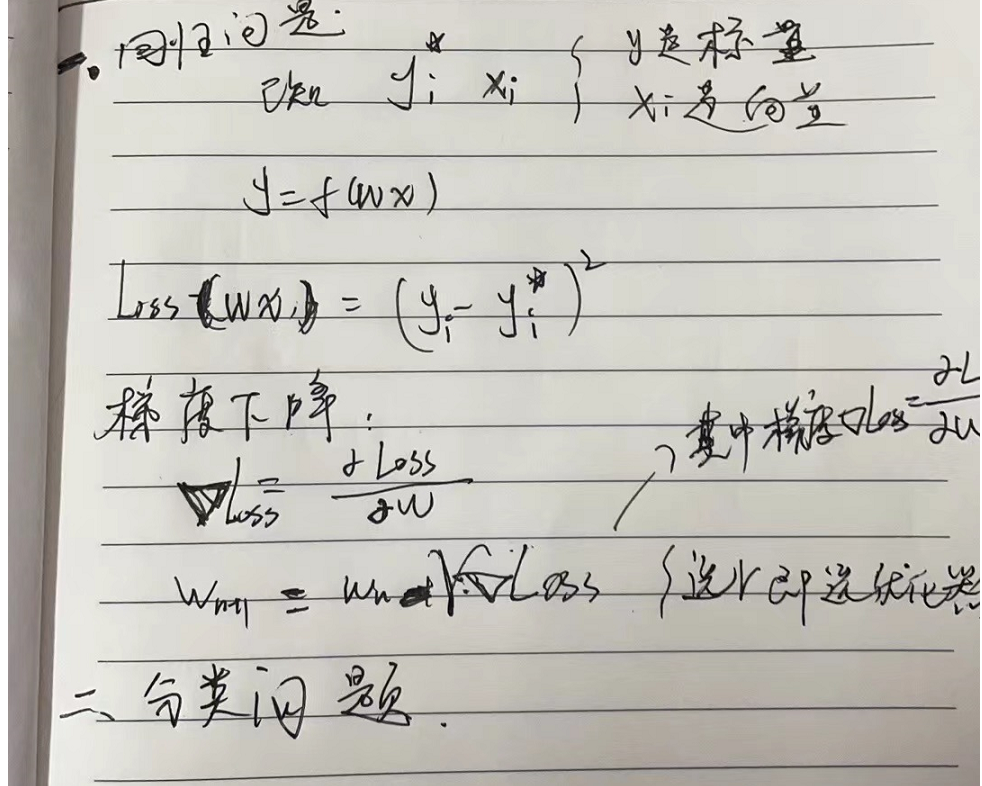 一. 回归问题.
已知 yᵢ* xᵢ { y是标量
xᵢ是向量
y=f(wx)
Loss(wxᵢ) = (yᵢ - yᵢ*)²
梯度下降:
其中梯度▽Loss=∂L/∂w
▽Loss = ∂Loss/∂w
wₙ₊₁ = wₙ - r·▽Loss {选r即选优化器
二、分类问题.